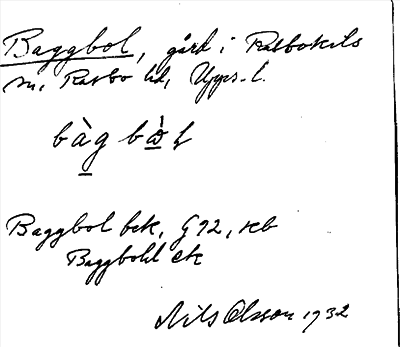 Baggbol, gård i Rasbokils
sn, Rasbo hd, Upps. l.
bàg bòl
Baggbol bek, G 92, kb
Baggbohl ek
Nils Olsson 1932